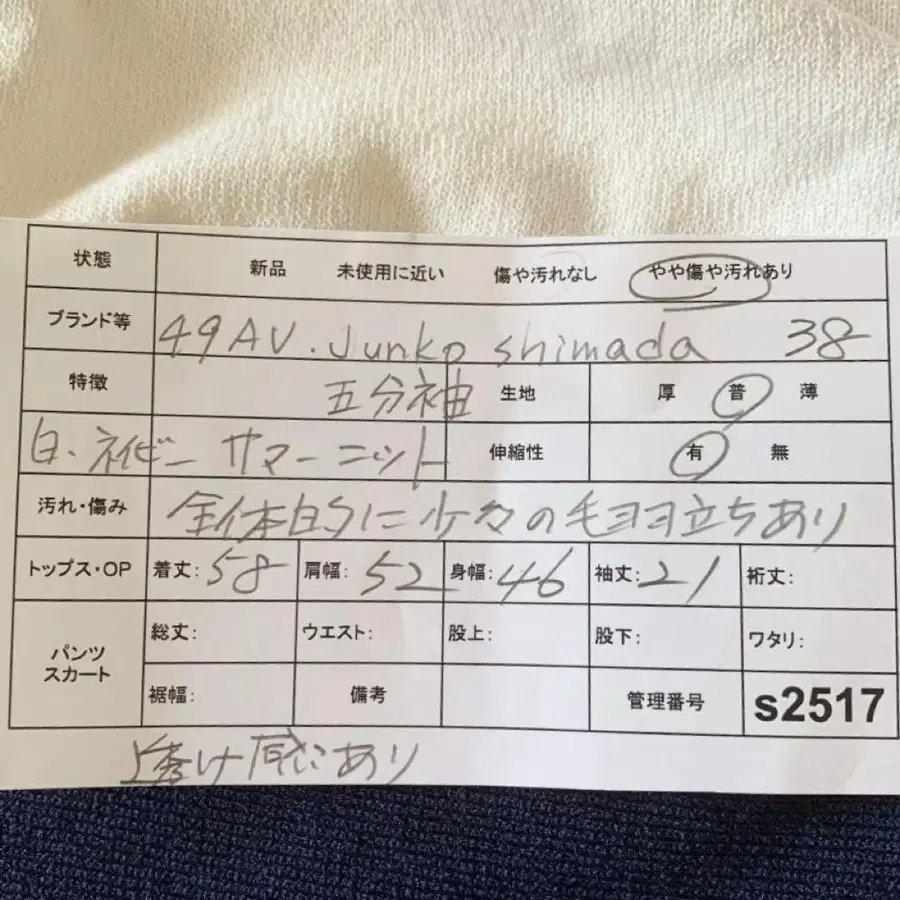 状態 新品 未使用に近い 傷や汚れなし やや傷や汚れあり
ブランド等 49AV.Junko shimada 38
特徴 五分袖 生地 厚 普 薄
白、ネイビー サマーニット 伸縮性 有 無
汚れ・傷み 全体的に少々の毛ヨヨ立ちあり
トップス・OP 着丈:58 肩幅:52 身幅:46 袖丈:21 裄丈:
パンツ スカート 総丈: ウエスト: 股上: 股下: ワタリ:
裾幅: 備考 管理番号 s2517
透け感あり